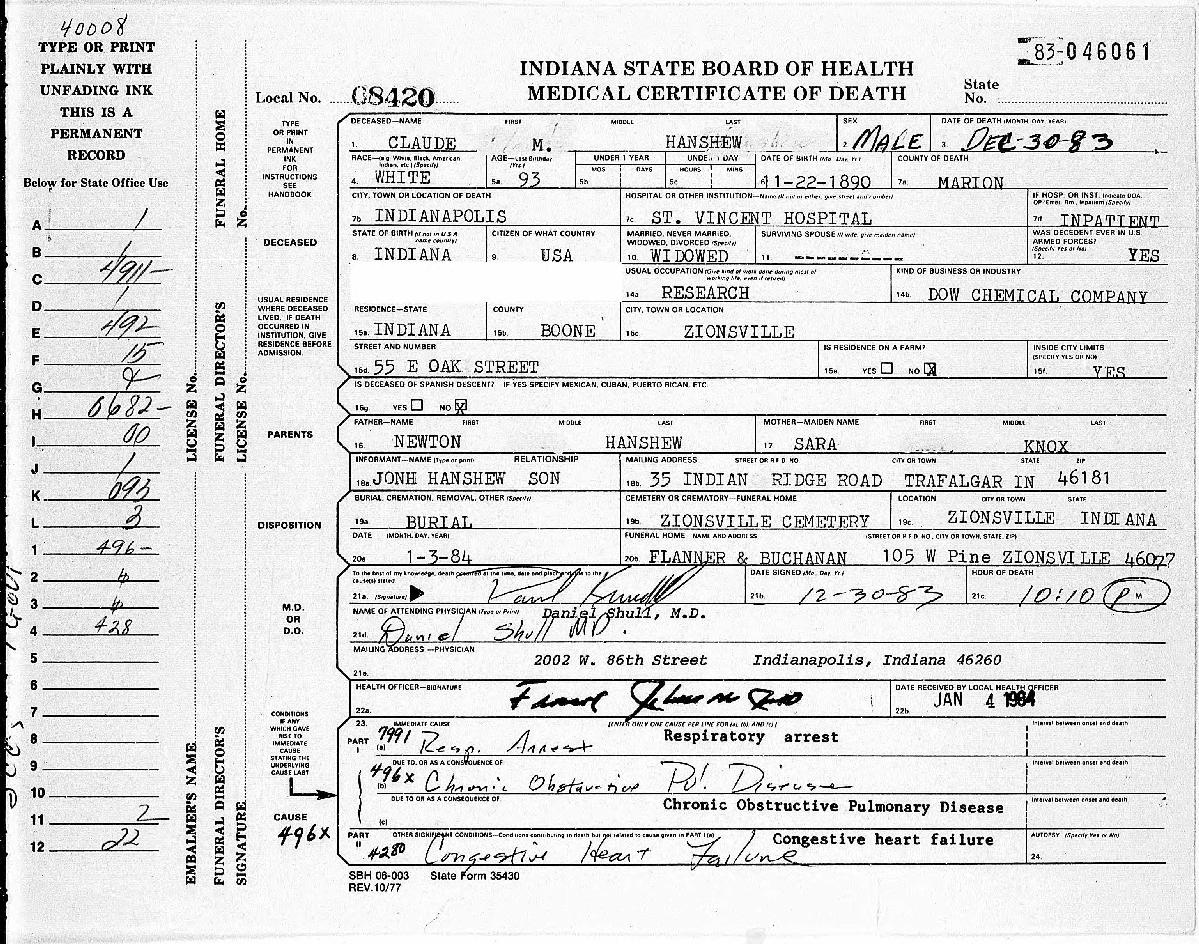 40008
TYPE OR PRINT
PLAINLY WITH
UNFADING INK
THIS IS A
PERMANENT
RECORD
Below for State Office Use
A 1
B
C 4911-
D 1
E 492
F 15
G
H 0682-
I 00
J 1
K 093
L 3
1 496-
2
3
4 428
5
6
7
8
9
10
11 2
12 22
EMBALMER'S NAME LICENSE No.
FUNERAL DIRECTOR'S SIGNATURE
FUNERAL DIRECTOR'S LICENSE No.
FUNERAL HOME No.
83-046061
INDIANA STATE BOARD OF HEALTH
MEDICAL CERTIFICATE OF DEATH
State No.
Local No. 08420
TYPE
OR PRINT
IN
PERMANENT
INK
FOR
INSTRUCTIONS
SEE
HANDBOOK
DECEASED—NAME FIRST MIDDLE LAST SEX DATE OF DEATH (MONTH, DAY, YEAR)
1. CLAUDE M. HANSHEW 2. MALE 3. DEC-30-83
RACE—(e.g. White, Black, American Indian, etc.) (Specify) AGE—Last Birthday (Yrs.) UNDER 1 YEAR UNDER 1 DAY DATE OF BIRTH (Mo., Day, Yr.) COUNTY OF DEATH
MOS DAYS HOURS MINS
4. WHITE 5a. 93 5b. 5c. 6. 11-22-1890 7a. MARION
CITY, TOWN OR LOCATION OF DEATH HOSPITAL OR OTHER INSTITUTION—Name (If not in either, give street and number) IF HOSP. OR INST. Indicate DOA, OP/Emer. Rm., Inpatient (Specify)
7b. INDIANAPOLIS 7c. ST. VINCENT HOSPITAL 7d. INPATIENT
DECEASED
STATE OF BIRTH (If not in U.S.A. name country) CITIZEN OF WHAT COUNTRY MARRIED, NEVER MARRIED, WIDOWED, DIVORCED (Specify) SURVIVING SPOUSE (If wife, give maiden name) WAS DECEDENT EVER IN U.S. ARMED FORCES? (Specify Yes or No)
8. INDIANA 9. USA 10. WIDOWED 11. 12. YES
USUAL OCCUPATION (Give kind of work done during most of working life, even if retired) KIND OF BUSINESS OR INDUSTRY
14a. RESEARCH 14b. DOW CHEMICAL COMPANY
USUAL RESIDENCE
WHERE DECEASED
LIVED. IF DEATH
OCCURRED IN
INSTITUTION, GIVE
RESIDENCE BEFORE
ADMISSION.
RESIDENCE—STATE COUNTY CITY, TOWN OR LOCATION
15a. INDIANA 15b. BOONE 15c. ZIONSVILLE
STREET AND NUMBER IS RESIDENCE ON A FARM? INSIDE CITY LIMITS (SPECIFY YES OR NO)
15d. 55 E OAK STREET 15e. YES ☐ NO ☒ 15f. YES
IS DECEASED OF SPANISH DESCENT? IF YES SPECIFY MEXICAN, CUBAN, PUERTO RICAN, ETC.
15g. YES ☐ NO ☒
PARENTS
FATHER—NAME FIRST MIDDLE LAST MOTHER—MAIDEN NAME FIRST MIDDLE LAST
16. NEWTON HANSHEW 17. SARA KNOX
INFORMANT—NAME (Type or print) RELATIONSHIP MAILING ADDRESS STREET OR R.F.D. NO. CITY OR TOWN STATE ZIP
18a. JONH HANSHEW SON 18b. 35 INDIAN RIDGE ROAD TRAFALGAR IN 46181
DISPOSITION
BURIAL, CREMATION, REMOVAL, OTHER (Specify) CEMETERY OR CREMATORY—FUNERAL HOME LOCATION CITY OR TOWN STATE
19a. BURIAL 19b. ZIONSVILLE CEMETERY 19c. ZIONSVILLE INDIANA
DATE (MONTH, DAY, YEAR) FUNERAL HOME NAME AND ADDRESS (STREET OR R.F.D. NO., CITY OR TOWN, STATE, ZIP)
20a. 1-3-84 20b. FLANNER & BUCHANAN 105 W Pine ZIONSVILLE 46077
M.D.
OR
D.O.
To the best of my knowledge, death occurred at the time, date and place and due to the cause(s) stated DATE SIGNED (Mo., Day, Yr.) HOUR OF DEATH
21a. (Signature) 21b. 12-30-83 21c. 10:10 PM
NAME OF ATTENDING PHYSICIAN (Type or Print) Daniel Shull, M.D.
21d. Daniel Shull MD.
MAILING ADDRESS—PHYSICIAN
21e. 2002 W. 86th Street Indianapolis, Indiana 46260
HEALTH OFFICER—SIGNATURE DATE RECEIVED BY LOCAL HEALTH OFFICER
22a. 22b. JAN 4 1984
CONDITIONS
IF ANY
WHICH GAVE
RISE TO
IMMEDIATE
CAUSE
STATING THE
UNDERLYING
CAUSE LAST
CAUSE
496X
23. IMMEDIATE CAUSE [ENTER ONLY ONE CAUSE PER LINE FOR (a), (b), AND (c)] Interval between onset and death
PART I 7991 (a) Resp. Arrest Respiratory arrest
DUE TO, OR AS A CONSEQUENCE OF Interval between onset and death
496X (b) Chronic Obstructive Pul Disease
DUE TO OR AS A CONSEQUENCE OF Interval between onset and death
(c) Chronic Obstructive Pulmonary Disease
PART II OTHER SIGNIFICANT CONDITIONS—Conditions contributing to death but not related to cause given in PART I (a) AUTOPSY (Specify Yes or No)
4280 Congestive Heart Failure Congestive heart failure 24.
SBH 06-003 State Form 35430
REV.10/77